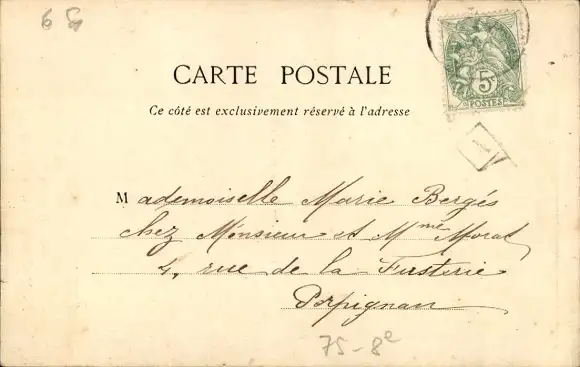 6 G
5c
POSTES
CARTE POSTALE
Ce côté est exclusivement réservé à l'adresse
1
Mademoiselle Marie Bergés
chez Monsieur et Mme Morat
4, rue de la Fusterie
Perpignan
75-8e